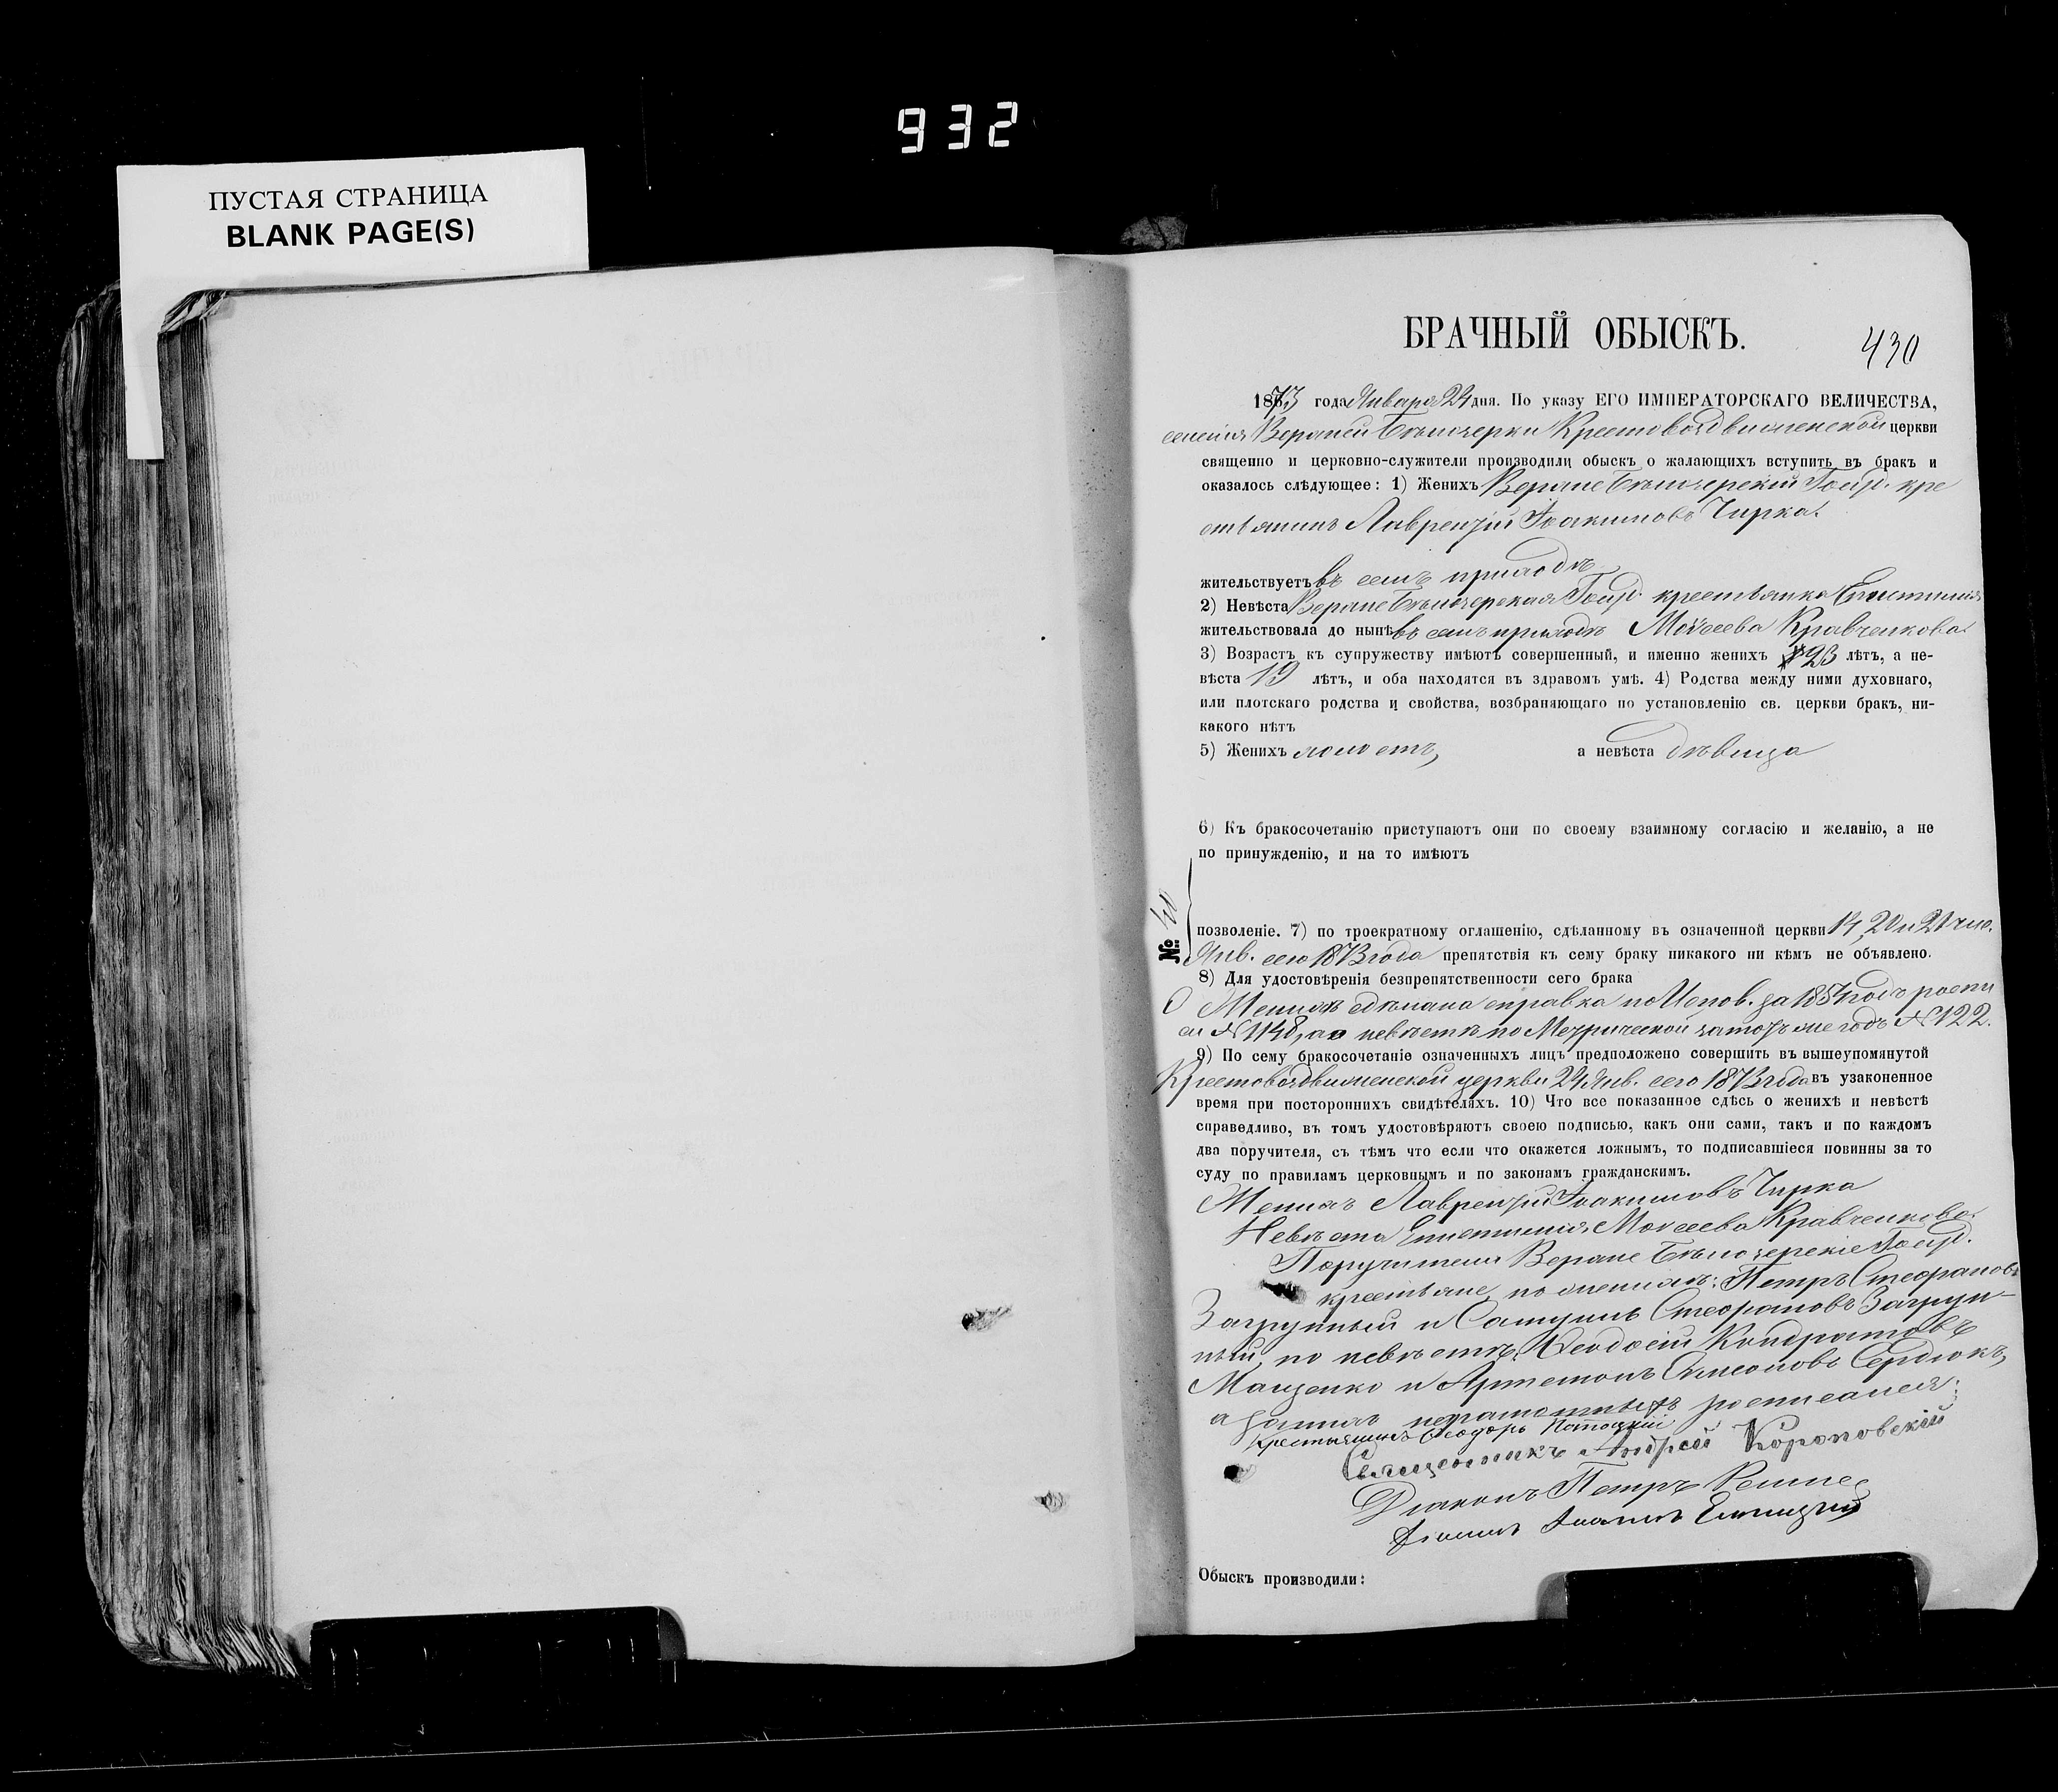 932
ПУСТАЯ СТРАНИЦА
BLANK PAGE(S)
БРАЧНЫЙ ОБЫСКЪ.
430
1873 года Января 24 дня. По указу ЕГО ИМПЕРАТОРСКАГО ВЕЛИЧЕСТВА,
селенія Верхней Бѣлозерки Крестовоздвиженской церкви
священно и церковно-служители производили обыскъ о жалающихъ вступить въ бракъ и
оказалось слѣдующее: 1) Женихъ Верхне Бѣлозерскій Госуд. кре
стьянинъ Лаврентій Іоакимовъ Чирка.
жительствуетъ въ семъ приходѣ
2) Невѣста Верхне Бѣлозерская Госуд. крестьянка Епистимія
жительствовала до нынѣ въ семъ приходѣ Моѵсеева Кравченкова.
3) Возрастъ къ супружеству имѣютъ совершенный, и именно женихъ 23 лѣтъ, а не-
вѣста 19 лѣтъ, и оба находятся въ здравомъ умѣ. 4) Родства между ними духовнаго,
или плотскаго родства и свойства, возбраняющаго по установленію св. церкви бракъ, ни-
какого нѣтъ
5) Женихъ холостъ, а невѣста дѣвица
6) Къ бракосочетанію приступаютъ они по своему взаимному согласію и желанію, а не
по принужденію, и на то имѣютъ
№: 40
позволеніе. 7) по троекратному оглашенію, сдѣланному въ означенной церкви 14, 20 и 21 чис.
Янв. сего 1873 года препятствія къ сему браку никакого ни кѣмъ не объявлено.
8) Для удостовѣренія безпрепятственности сего брака
О Женихѣ сдѣлана справка по Испов. за 1854 годъ роспи
си № 1148, а о невѣстѣ по Метрической за тотъ же годъ № 122.
9) По сему бракосочетаніе означенныхъ лицъ предположено совершить въ вышеупомянутой
Крестовоздвиженской церкви 24 Янв. сего 1873 года въ узаконенное
время при постороннихъ свидѣтеляхъ. 10) Что все показанное сдѣсь о женихѣ и невѣстѣ
справедливо, въ томъ удостовѣряютъ своею подписью, какъ они сами, такъ и по каждомъ
два поручителя, съ тѣмъ что если что окажется ложнымъ, то подписавшіеся повинны за то
суду по правиламъ церковнымъ и по законамъ гражданскимъ.
Женихъ Лаврентій Іоакимовъ Чирка
Невѣста Епистимія Моѵсеева Кравченкова.
Поручители Верхне Бѣлозерскіе Госуд.
крестьяне, по женихѣ: Петръ Стефановъ
Загрупный и Самуилъ Стефановъ Загруп-
ный, по невѣстѣ: Ѳеодосій Кондратовъ
Маценко и Артемонъ Симеоновъ Сердюкъ,
а за нихъ неграмотныхъ росписался:
Крестьянинъ Ѳеодоръ Потоцкій
Священникъ Андрей Короповскій
Діаконъ Петръ
Іоаннъ
Обыскъ производили: